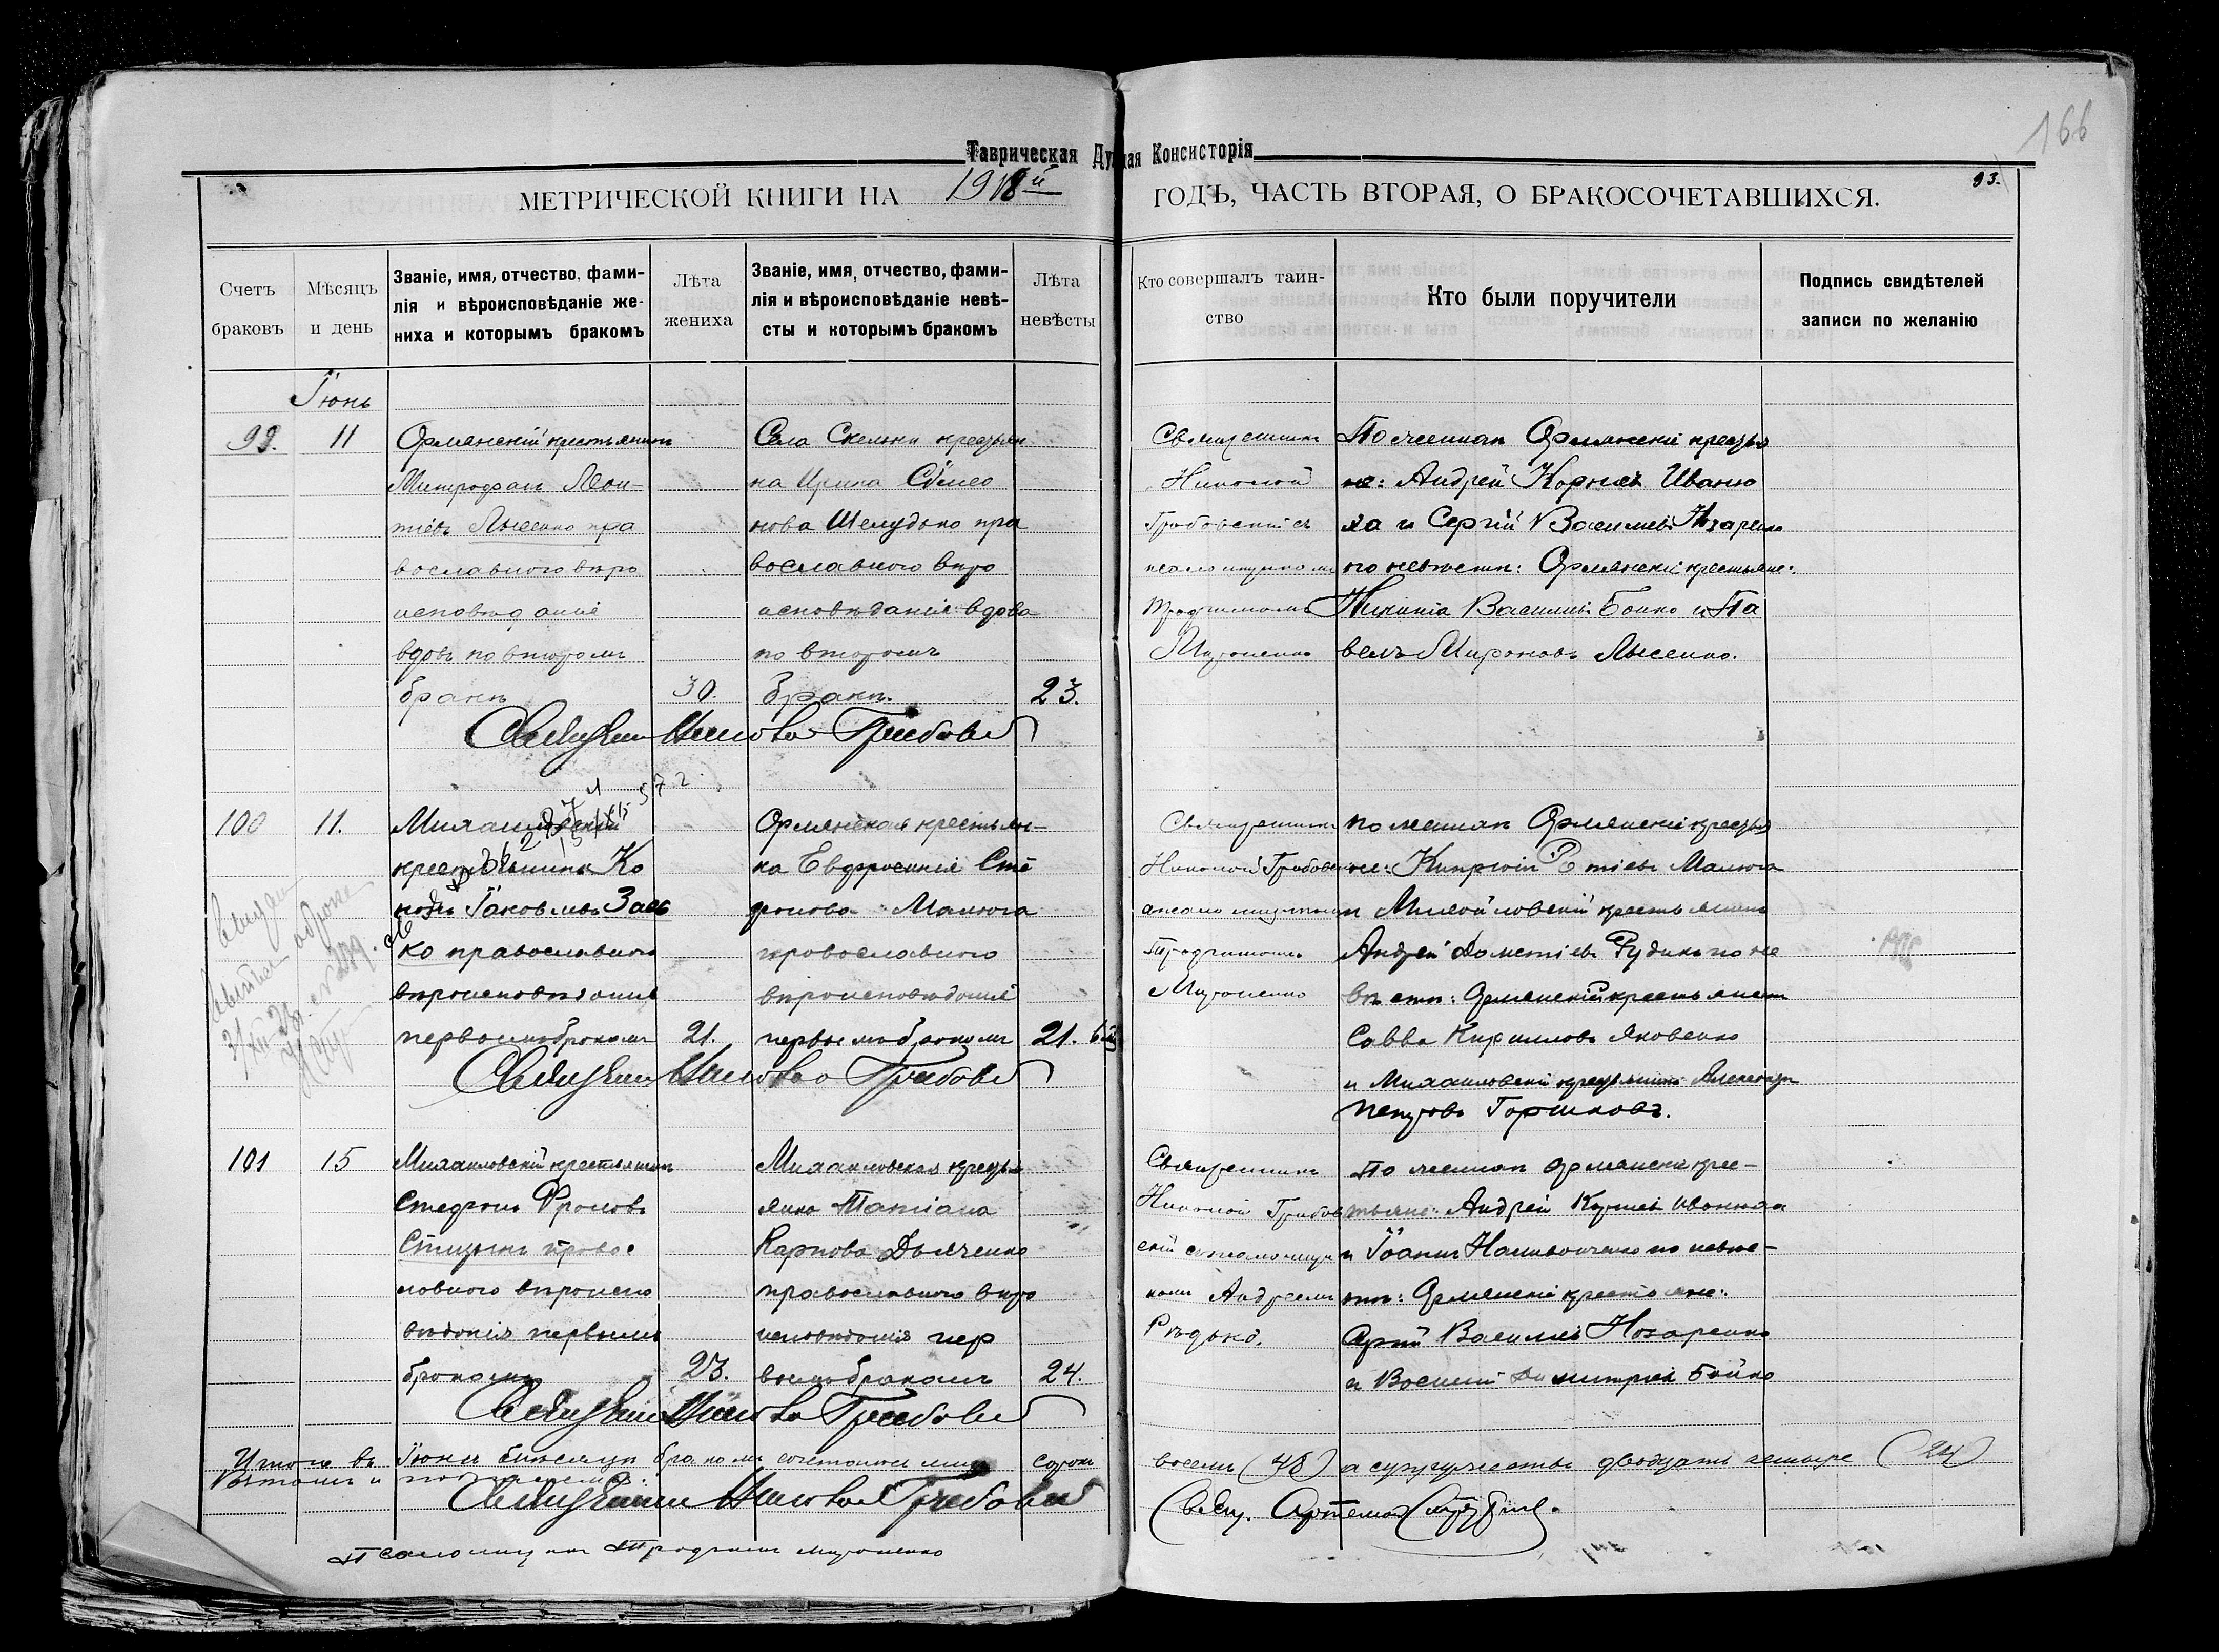 166
Таврическая Духная Консисторія
93.
МЕТРИЧЕСКОЙ КНИГИ НА 1918й ГОДЪ, ЧАСТЬ ВТОРАЯ, О БРАКОСОЧЕТАВШИХСЯ.
Счетъ браковъ
Мѣсяцъ и день
Званіе, имя, отчество, фами-
лія и вѣроисповѣданіе же-
ниха и которымъ бракомъ
Лѣта жениха
Званіе, имя, отчество, фами-
лія и вѣроисповѣданіе невѣ-
сты и которымъ бракомъ
Лѣта невѣсты
Кто совершалъ таин-
ство
Кто были поручители
Подпись свидѣтелей
записи по желанію
Іюнь
99.
11
Орлянскій крестьянинъ
Митрофанъ Леон-
тіевъ Лысенко пра
вославнаго вѣро
исповѣданія
вдовъ по второмъ
бракѣ
30.
Села Скельки крестьян
ка Ирина Симео
нова Шелудько пра
вославнаго вѣро
исповѣданія вдова
по второмъ
бракѣ.
23.
Священникъ
Николай
Грибовскій съ
псаломщикомъ
Трофимомъ
Мироненко
По женихѣ Орлянскіе крестья
не: Андрей Корніевъ Иваню
ха и Сергій Васильевъ Назаренко
по невѣстѣ: Орлянскіе крестьяне:
Василіевъ Бойко и Па
велъ Мироновъ Лысенко.
Священникъ Николай Грибовскій
100
11.
Михайловскій
крестьянинъ Ко
нонъ Іаковлевъ Заев
ко православнаго
вѣроисповѣданія
первымъ бракомъ
21.
Орлянская крестьян-
ка Евфросинія Сте
фанова Малюга
православнаго
вѣроисповѣданія
первымъ бракомъ
21.
Священникъ
Николай Грибовскій
псаломщикомъ
Трофимомъ
Мироненко
По женихѣ Орлянскій крестья
Малюга
и Михайловскій крестьянинъ
Андрей Дометіевъ Рудикъ по не
вѣстѣ: Орлянскій крестьянинъ
Савва Кирилловъ Яковенко
и Михайловскій крестьянинъ Александръ
Петровъ Горшковъ.
Священникъ Николай Грибовскій
101
15
Михайловскій крестьянинъ
Стефанъ Фроловъ
Спицынъ право
славнаго вѣроиспо
вѣданія первымъ
бракомъ
23.
Михайловская кресть
янка Татіана
Карпова Дьяченко
православнаго вѣро
исповѣданія пер
вымъ бракомъ
24.
Священникъ
Николай Грибов
скій съ псаломщи
комъ Андреемъ
Рѣдько.
По женихѣ Орлянскіе крес-
тьяне: Андрей Корніевъ Иванюха
и Іоаннъ Наливайченко по невѣс-
тѣ: Орлянскіе крестьяне:
Сергій Василіевъ Назаренко
и Василій Димитріевъ Бойко
Священникъ Николай Грибовскій
Итого въ Іюнѣ мѣсяцѣ бракомъ сочеталось лицъ сорокъ восемь (48) а супружествъ двадцать четыре (24)
Священникъ Николай Грибовскій
Свящ. Артемій
Псаломщикъ Трофимъ Мироненко